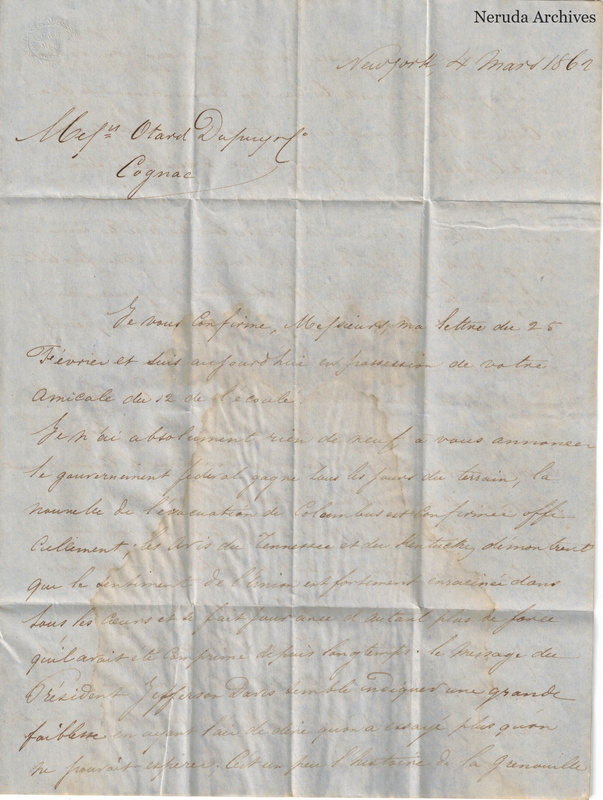 Neruda Archives
New York 4 Mars 1862
Messrs Otard Dupuy & Co
Cognac
Je vous confirme, Messieurs, ma lettre du 25
Février et suis aujourd'hui en possession de votre
amicale du 12 de l'écoulé.
Je n'ai absolument rien de neuf a vous annoncer
le gouvernement fédéral gagne tous les jours du terrain, la
nouvelle de l'évacuation de Columbus est confirmée offi
ciellement; les avis du Tennessee et du Kentucky démontrent
que le sentiment de l'Union est fortement enraciné dans
tous les cœurs et se fait jour avec d'autant plus de force
qu'il avait été comprimé depuis longtemps. le message du
Président Jefferson Davis semble indiquer une grande
faiblesse en ayant l'air de dire qu'on a essayé plus qu'on
ne pouvait espérer. C'est un peu l'histoire de la grenouille